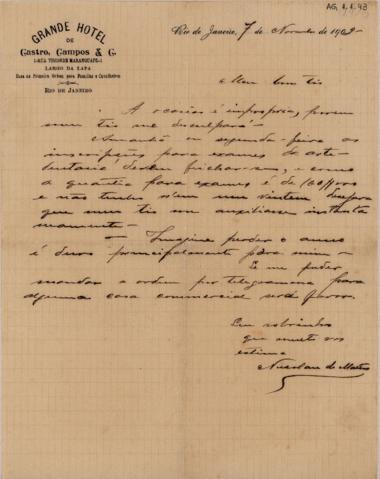 AG, 1.1.43
GRANDE HOTEL
DE
Castro, Campos & C.
1-RUA VISCONDE MARANGUAPE-1
LARGO DA LAPA
Casa de Primeira Ordem para Familias e Cavalheiros
RIO DE JANEIRO
Rio de Janeiro, 7 de Novembro de 1909
Meu bom tio
A occasião é impropria, porem
meu tio me desculpará.
Amanhã ou segunda-feira as
inscripções para exames de
devem fechar-se, e como
a quantia para exames é de
e não tenho nem um vintem
que meu tio me auxiliasse
Imagine perder o anno
é duro principalmente para mim
E me puder
mandar a ordem por telegramma para
alguma casa commercial
Seu sobrinho
que muito vos
estima
de Mattos